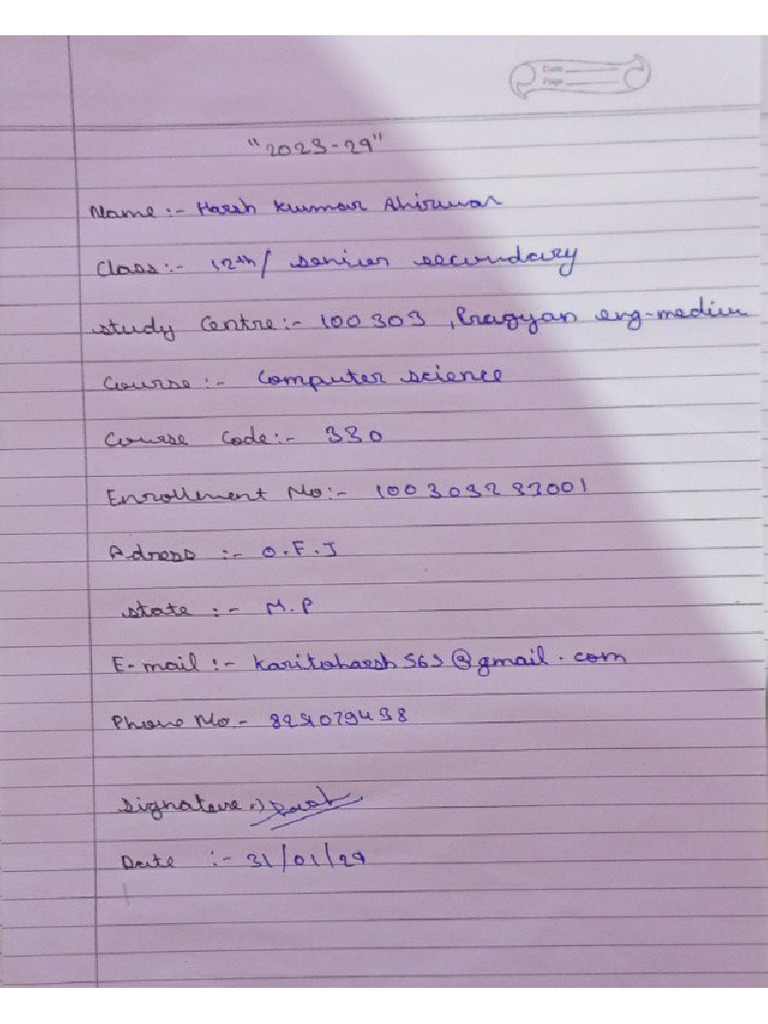 Date
Page
"2023-24"
Name:- Harsh Kumar Ahirwar
Class:- 12th/ senior secondary
study Centre:- 100303, Pragyan eng-medium
Course:- Computer science
Course Code:- 330
Enrollment No:-
Adress :- O.F.J
state :- M.P
E-mail :-
Phone No-
Signature :-
Date :- 31/01/24